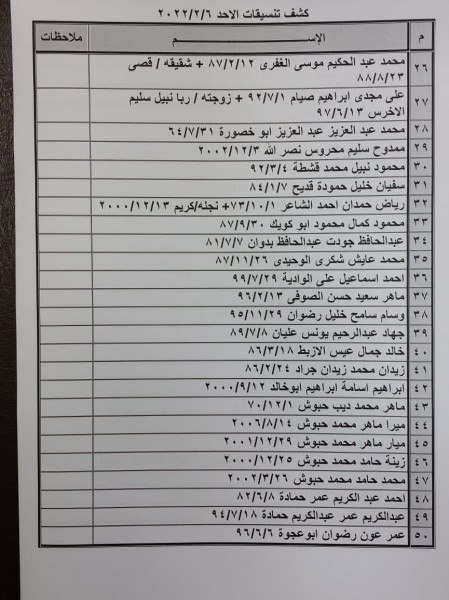 كشف تنسيقات الاحد ٢٠٢٢/٢/٦
م الإســـم ملاحظات
٢٦ محمد عبد الحكيم موسى الغفرى ٨٧/٢/١٢ + شقيقه / قصى ٨٨/٨/٢٣
٢٧ على مجدى ابراهيم صيام ٩٢/٧/١ + زوجته / ربا نبيل سليم الاخرس ٩٧/٦/١٣
٢٨ محمد عبد العزيز عبد العزيز ابو خصورة ٦٤/٧/٣١
٢٩ ممدوح سليم محروس نصر الله ٢٠٠٢/١٢/٣
٣٠ محمود نبيل محمد قشطة ٩٢/٣/٤
٣١ سفيان خليل حمودة قديح ٨٤/١/٧
٣٢ رياض حمدان احمد الشاعر ٧٣/١٠/١+ نجله/كريم ٢٠٠٠/١٢/١٣
٣٣ محمود كمال محمود ابو كويك ٨٧/٩/٣٠
٣٤ عبدالحافظ جودت عبدالحافظ بدوان ٨١/٧/٧
٣٥ محمد عايش شكرى الوحيدى ٨٧/١١/٢٦
٣٦ احمد اسماعيل على الوادية ٩٩/٧/٢٩
٣٧ ماهر سعيد حسن الصوفى ٩٦/٢/١٣
٣٨ وسام سامح خليل رضوان ٩٥/١١/٢٩
٣٩ جهاد عبدالرحيم يونس عليان ٨٩/٧/٨
٤٠ خالد جمال عيس الازبط ٨٦/٣/١٨
٤١ زيدان محمد زيدان جراد ٨٦/٢/٢٤
٤٢ ابراهيم اسامة ابراهيم ابوخالد ٢٠٠٠/٩/١٢
٤٣ ماهر محمد ديب حبوش ٧٠/١٢/١
٤٤ ميرا ماهر محمد حبوش ٢٠٠٦/٨/١٤
٤٥ ميار ماهر محمد حبوش ٢٠٠١/١٢/٢٩
٤٦ زينة حامد محمد حبوش ٢٠٠٠/١٢/٢٥
٤٧ محمد حامد محمد حبوش ٢٠٠٢/٣/٢٦
٤٨ احمد عبد الكريم عمر حمادة ٨٢/٦/٨
٤٩ عبدالكريم عمر عبدالكريم حمادة ٩٤/٧/١٨
٥٠ عمر عون رضوان ابوعجوة ٩٦/٦/٦